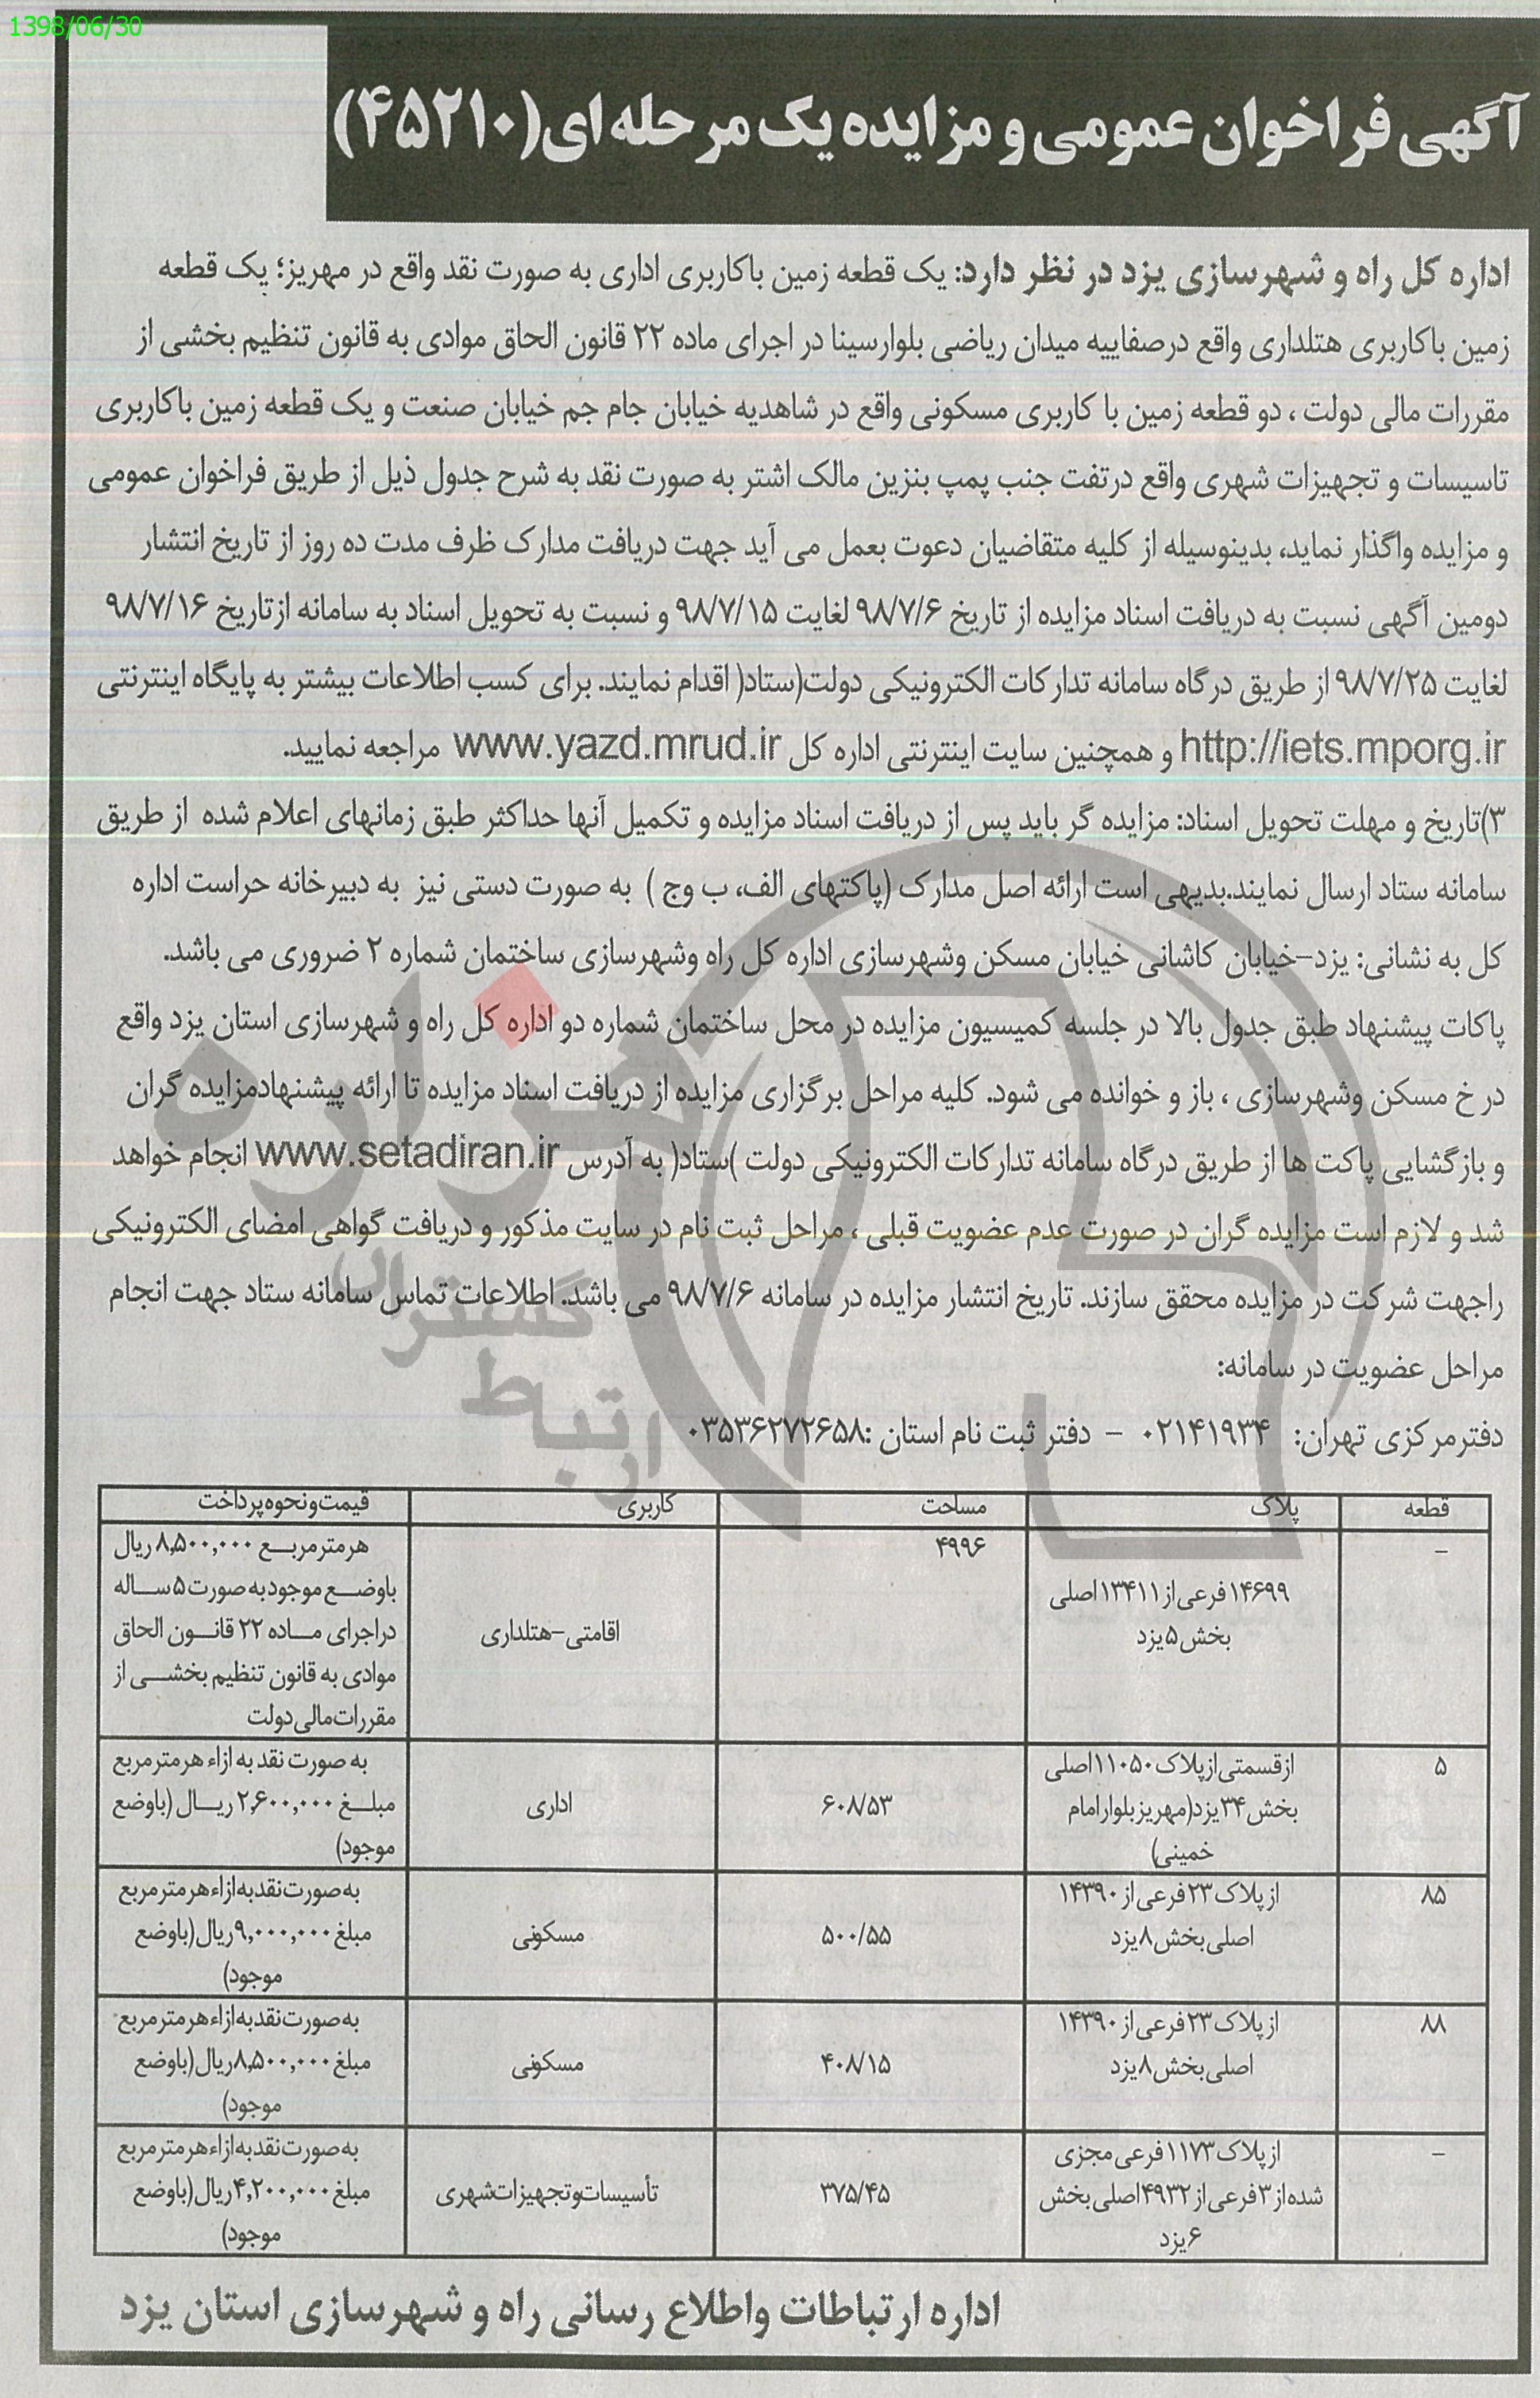 1398/06/30
آگهی فراخوان عمومی و مزایده یک مرحله ای(۴۵۲۱۰)
اداره کل راه و شهرسازی یزد در نظر دارد: یک قطعه زمین باکاربری اداری به صورت نقد واقع در مهریز؛ یک قطعه
زمین باکاربری هتلداری واقع درصفاییه میدان ریاضی بلوارسینا در اجرای ماده ۲۲ قانون الحاق موادی به قانون تنظیم بخشی از
مقررات مالی دولت ، دو قطعه زمین با کاربری مسکونی واقع در شاهدیه خیابان جام جم خیابان صنعت و یک قطعه زمین باکاربری
تاسیسات و تجهیزات شهری واقع درتفت جنب پمپ بنزین مالک اشتر به صورت نقد به شرح جدول ذیل از طریق فراخوان عمومی
و مزایده واگذار نماید، بدینوسیله از کلیه متقاضیان دعوت بعمل می آید جهت دریافت مدارک ظرف مدت ده روز از تاریخ انتشار
دومین آگهی نسبت به دریافت اسناد مزایده از تاریخ ۹۸/۷/۶ لغایت ۹۸/۷/۱۵ و نسبت به تحویل اسناد به سامانه ازتاریخ ۹۸/۷/۱۶
لغایت ۹۸/۷/۲۵ از طریق درگاه سامانه تدارکات الکترونیکی دولت(ستاد( اقدام نمایند. برای کسب اطلاعات بیشتر به پایگاه اینترنتی
http://iets.mporg.ir و همچنین سایت اینترنتی اداره کل www.yazd.mrud.ir مراجعه نمایید.
۳)تاریخ و مهلت تحویل اسناد: مزایده گر باید پس از دریافت اسناد مزایده و تکمیل آنها حداکثر طبق زمانهای اعلام شده از طریق
سامانه ستاد ارسال نمایند.بدیهی است ارائه اصل مدارک (پاکتهای الف، ب وج ) به صورت دستی نیز به دبیرخانه حراست اداره
کل به نشانی: یزد-خیابان کاشانی خیابان مسکن وشهرسازی اداره کل راه وشهرسازی ساختمان شماره ۲ ضروری می باشد.
پاکات پیشنهاد طبق جدول بالا در جلسه کمیسیون مزایده در محل ساختمان شماره دو اداره کل راه و شهرسازی استان یزد واقع
در خ مسکن وشهرسازی ، باز و خوانده می شود. کلیه مراحل برگزاری مزایده از دریافت اسناد مزایده تا ارائه پیشنهادمزایده گران
و بازگشایی پاکت ها از طریق درگاه سامانه تدارکات الکترونیکی دولت )ستاد( به آدرس www.setadiran.ir انجام خواهد
شد و لازم است مزایده گران در صورت عدم عضویت قبلی ، مراحل ثبت نام در سایت مذکور و دریافت گواهی امضای الکترونیکی
راجهت شرکت در مزایده محقق سازند. تاریخ انتشار مزایده در سامانه ۹۸/۷/۶ می باشد. اطلاعات تماس سامانه ستاد جهت انجام
مراحل عضویت در سامانه:
دفترمرکزی تهران: ۰۲۱۴۱۹۳۴ - دفتر ثبت نام استان :۰۳۵۳۶۲۷۲۶۵۸
هزاره
گسترال
ارتباط
قطعه پلاک مساحت کاربری قیمت‌ونحوه‌پرداخت
– ۴۹۹۶ هر مترمربع ۸,۵۰۰,۰۰۰ ریال
۱۴۶۹۹ فرعی از ۱۳۴۱۱ اصلی باوضع موجود به صورت ۵ ساله
بخش ۵ یزد اقامتی-هتلداری در اجرای ماده ۲۲ قانون الحاق
موادی به قانون تنظیم بخشی از
مقررات مالی دولت
۵ از قسمتی از پلاک ۱۱۰۵۰ اصلی به صورت نقد به ازاء هر مترمربع
بخش ۳۴ یزد(مهریز بلوار امام ۶۰۸/۵۳ اداری مبلغ ۲,۶۰۰,۰۰۰ ریال (باوضع
خمینی) موجود)
۸۵ از پلاک ۲۳ فرعی از ۱۴۳۹۰ به صورت نقد به ازاء هر مترمربع
اصلی بخش ۸ یزد ۵۰۰/۵۵ مسکونی مبلغ ۹,۰۰۰,۰۰۰ ریال (باوضع
موجود)
۸۸ از پلاک ۲۳ فرعی از ۱۴۳۹۰ به صورت نقد به ازاء هر مترمربع
اصلی بخش ۸ یزد ۴۰۸/۱۵ مسکونی مبلغ ۸,۵۰۰,۰۰۰ ریال (باوضع
موجود)
– از پلاک ۱۱۷۳ فرعی مجزی به صورت نقد به ازاء هر مترمربع
شده از ۳ فرعی از ۴۹۳۲ اصلی بخش ۳۷۵/۴۵ تأسیسات و تجهیزات شهری مبلغ ۴,۲۰۰,۰۰۰ ریال (باوضع
۶ یزد موجود)
اداره ارتباطات واطلاع رسانی راه و شهرسازی استان یزد